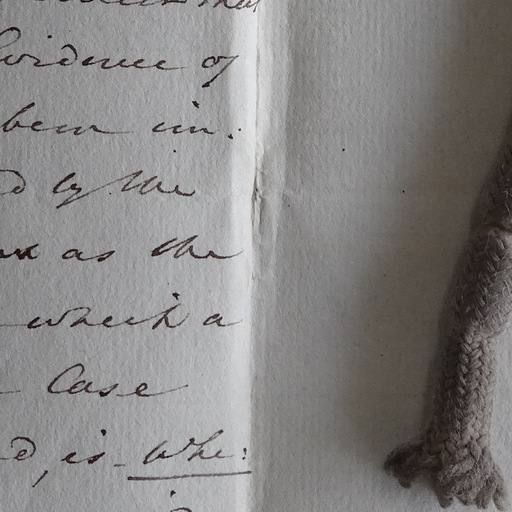 Evidence of
been in:
d by the
as the
which a
Case
d, is whe: